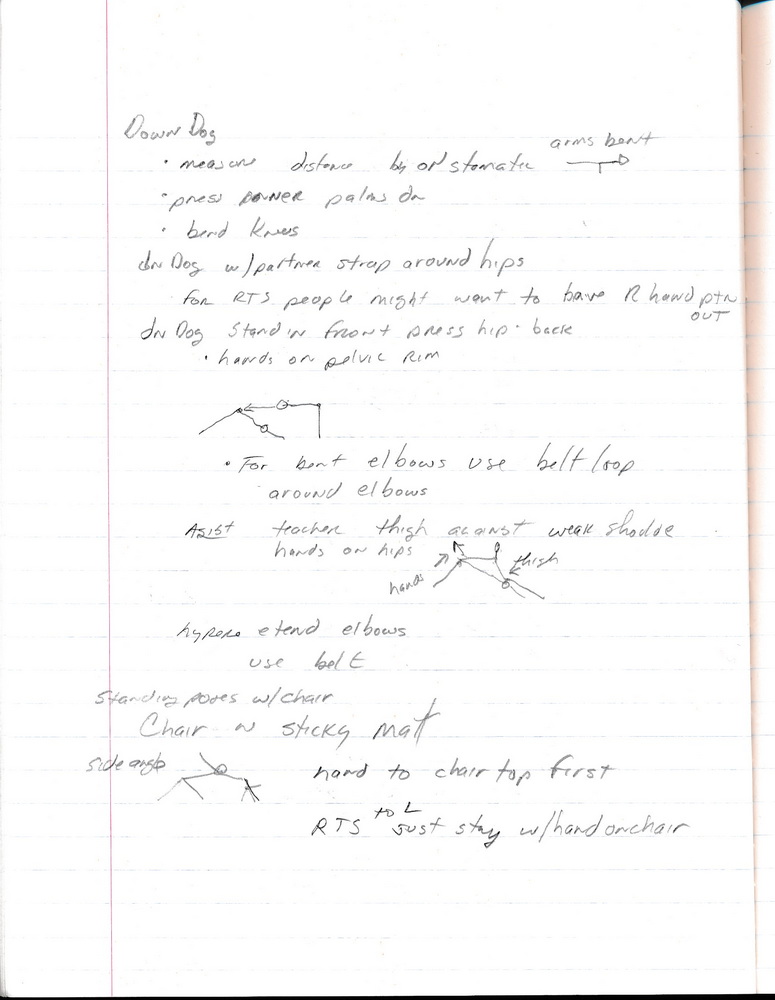 Down Dog
arms bent
• measure distance by on stomatic
• press inner palms dn
• bend knees
dn Dog w/partner strap around hips
for RTS people might want to have R hand ptn
OUT
dn Dog stand in front press hip back
• hands on pelvic rim
• For bent elbows use belt loop
around elbows
Asist teacher thigh against weak
hands on hips
thigh
hands
hypere etend elbows
use belt
Standing poses w/chair
Chair sticky matt
side angle
hand to chair top first
to L
RTS Just stay w/hand on chair